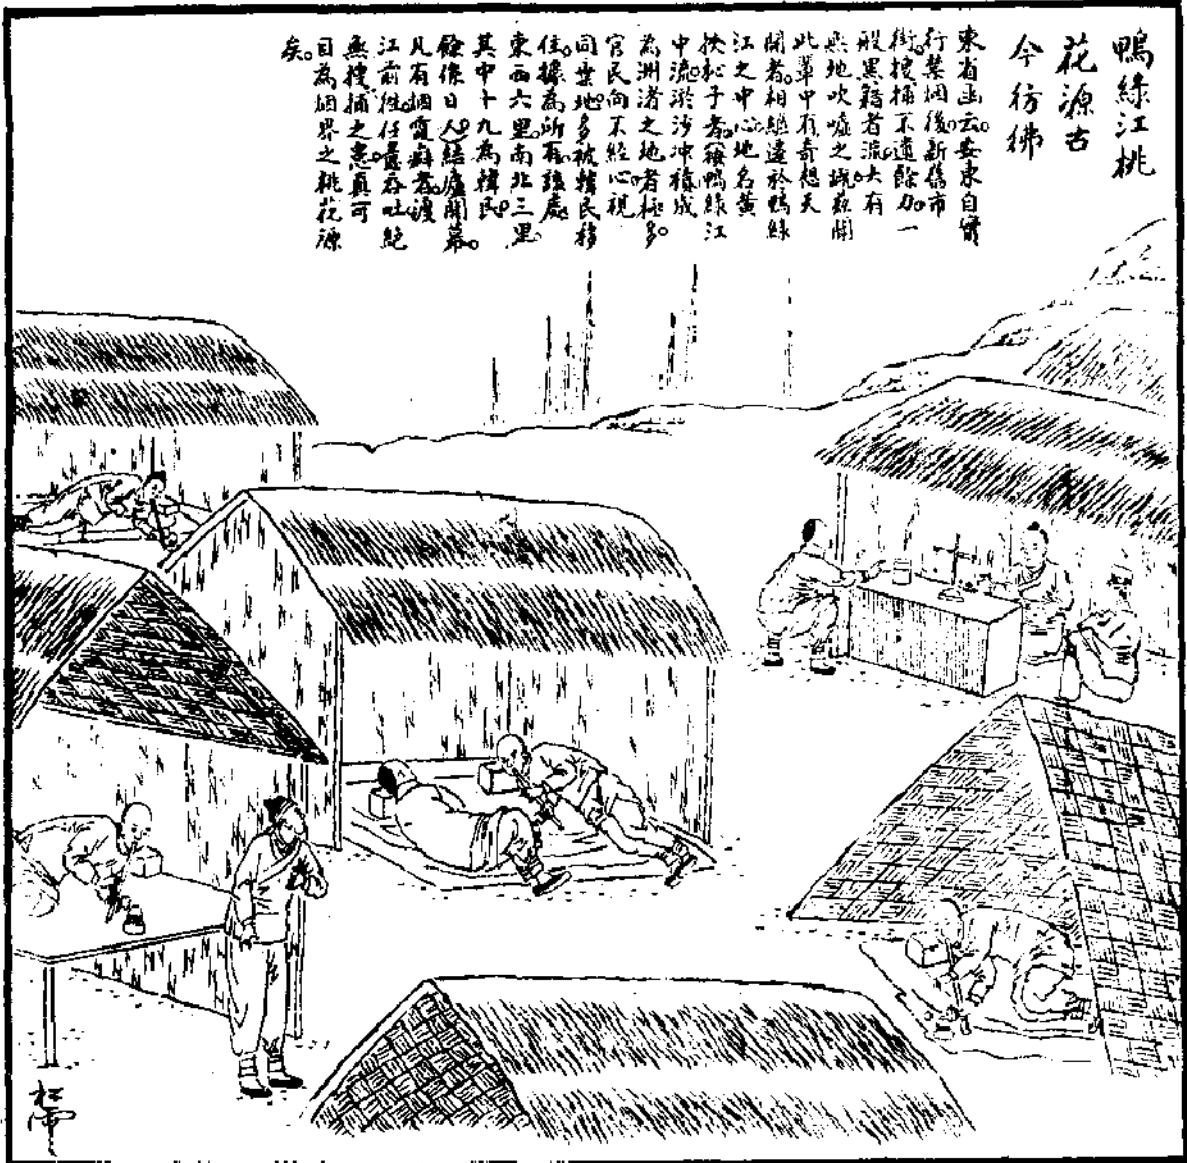 鴨綠江桃
花源古
今彷彿
東省函云。安東自實
行禁烟後。新舊市
街。搜捕不遺餘力。一
般黑籍者流。大有
無地吹噓之慨。茲聞
此輩中有奇想天
開者。相繼遠於鴨綠
江之中心地名黃
子者。鴨綠江
中流。淤沙沖積成
為洲渚之地者極多。
官民向不經心視
同棄地。多被韓民移
住。據為所有。該處
東西六里。南北三里。
其中十九為韓民。
餘係日人。結廬開幕。
凡有烟霞癖者。渡
江前往。任意吞吐絕
無搜捕之患。真可
目為烟界之桃花源
矣。